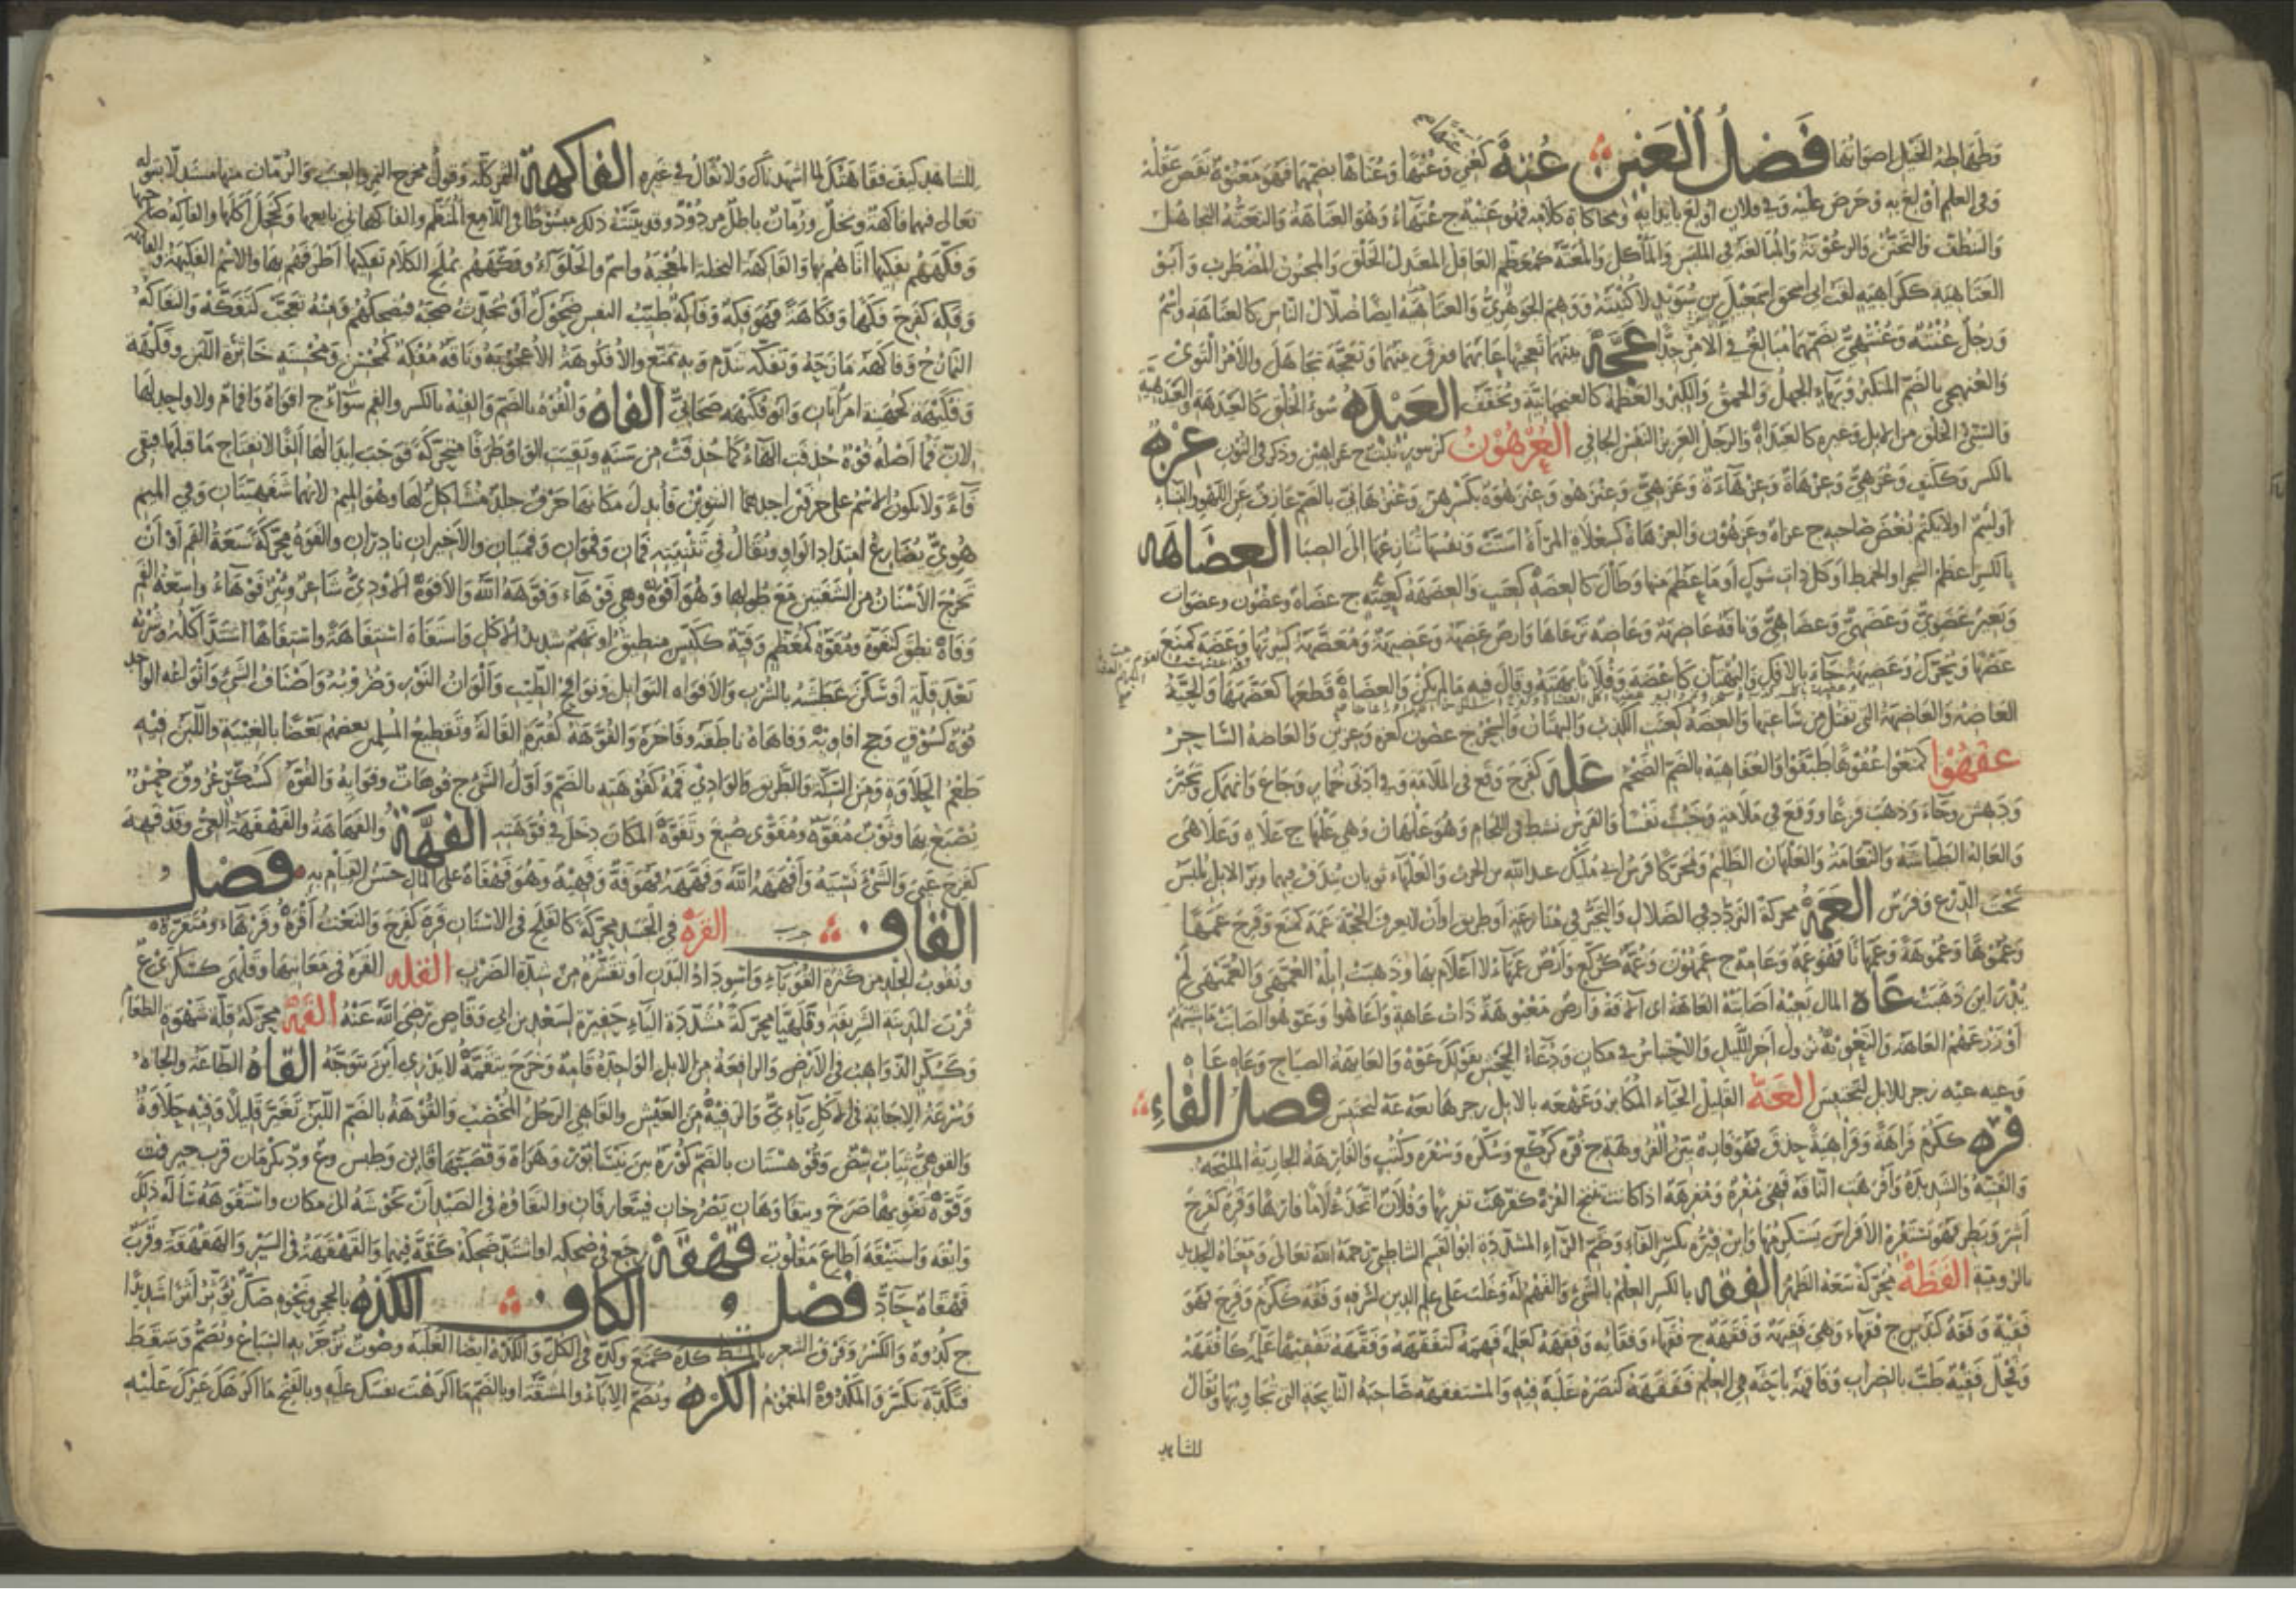 وطهاطه الخيل اصواتها فصل العين عته كعني وعتها وعتاها بضمهما فهو معتوه نقص عقله
وفي العلم اولع به وحرص عليه وفي فلان اولع بايذايه ومحاكاة كلامه فهو عتيه ج عتهاء وهو العتاهة والتعته التجاهل
والتنظف والتحنن والرعونة والمبالغة في الملبس والماكل والمعته كمعظم العاقل المعتدل الخلق والمجنون المضطرب وابو
العتاهية ككراهية لقب ابي اسحق اسمعيل بن سويد لا كنيته ووهم الجوهري والعتاهية ايضا ضلال الناس كالعتاهة واسم
ورجل عتته وعنتهي بضمهما مبالغ في الامر جدا عجه بينهما تعجيها عانهما ففرق بينهما وتعجه تجاهل والامر التوى
والعنجهي بالضم المتكبر وبهاء الجهل والحمق والكبر والعظمة كالعنجهانية وتخفف العيده سوء الخلق كالعيدهة والعيدهية
والسيئ الخلق من الابل وغيره كالعيداه والرجل العزيز النفس الجافي العرهون كزنبور نبت ج عراهين وذكر في النون عزه
بالكسر وككتف وعزهى وعزهاة وعزهاءة وعزهي وعنزهو وعنزهوة بكسرهن وعنزهاني بالضم عازف عن اللهو والنساء
او لئيم او لا يكتم بغض صاحبه ج عزاه وعزهون والعزهاة كسعلاة المراة اسنت ونفسها تنازعها الى الصبا العضاهة
بالكسر اعظم الشجر او الخمط او كل ذات شوك او ما عظم منها وطال كالعضه كعنب والعضهة كعنبة ج عضاه وعضون وعضوات
وبعير عضوي وعضهي وعضاهي وناقة عاضهة وعاضه ترعاها وارض عضهة وعضيهة ومعضهة كثيرتها وعضه كمنع
عضها ويحرك وعضيهة جاء بالافك والبهتان كاعضه وفلانا بهته وقال فيه ما لم يكن والعضاه قطعها كعضهها والحية
العاضه والعاضهة التي تقتل من ساعتها والعضه كعنب الكذب والبهتان والسحر ج عضون كعزه وعزين والعاضه الساحر
عفهوا كمنعوا عفوها طبقوا والعفاهية بالضم الضخم عله كفرح وقع في الملامة وفي ادنى خمار وجاع وانهمك وتحير
ودهش وجاء وذهب فزعا ووقع في ملامة وخبث نفسا والفرس نشط في اللجام وهو علهان وهي علهى ج علاه وعلاهى
والعاله الطياشة والنعامة والعلهان الظليم ومحركا فرس ابي مليل عبد الله بن الحرث والعلهاء ثوبان يندف فيهما وبر الابل يلبس
تحت الدرع وفرس العمه محركة التردد في الضلال والتحير في منازعة او طريق او ان لا يعرف الحجة عمه كمنع وفرح عمها
وعموها وعموهة وعمهانا فهو عمه وعامه ج عمهون وعمه كركع وارض عمهاء لا اعلام بها وذهبت ابله العمهى والعميهى لم
يدر اين ذهبت عاه المال يعيه اصابته العاهة اى الافة وارض معيوهة ذات عاهة واعاهوا وعوهوا اصابت ماشيتهم
او زرعهم العاهة والتعويه نزول اخر الليل والاحتباس في مكان ودعاء الجحش بقولك عوه عوه والعايهة الصياح وعاه عاه
وعيه عيه زجر للابل لتحتبس العه القليل الحياء المكابر وعهعه بالابل زجرها بعه عه لتحتبس فصل الفاء
فره ككرم فراهة وفراهية حذق فهو فاره بين الفروهة ج فره كركع وسكرة وسفرة وكتب والفارهة الجارية المليحة
والفتية والشديدة وافرهت الناقة فهي مفره ومفرهة اذا كانت تنتج الفره كفرهت تفريها وفلان اتخذ غلاما فارها وفره كفرح
اشر وبطر فهو يستفره الافراس يستكرمها وابن فيره بكسر الفاء وضم الراء المشددة ابو القسم الشاطبي رحمه الله تعالى ومعناه الحديد
بالرومية الفطه محركة سعة الظهر الفقه بالكسر العلم بالشئ والفهم له وغلب على علم الدين لشرفه وفقه ككرم وفرح فهو
فقيه وفقه كندس ج فقهاء وهي فقيهة وفقهة ج فقهاء وفقائه وفقهه كعلمه فهمه كتفقهه وفقهه تفقيها علمه كافقهه
وفحل فقيه طب بالضراب وفاقهه باحثه في العلم ففقهه كنصره غلبه فيه والمستفقهة صاحبة النايحة التي تجاوبها ويقال
للشاهد
للشاهد كيف فقاهتك لما اشهدناك ولا يقال في غيره الفاكهة الثمر كله وقول مخرج التمر والعنب والرمان منها مستدلا بقوله
تعالى فيهما فاكهة ونخل ورمان باطل مردود وقد بينت ذلك مبسوطا في اللامع المعلم والفاكهاني بايعها وكخجل اكلها والفاكه صاحبها
وفكههم تفكيها اتاهم بها والفاكهة النخلة المعجبة واسم والحلواء وفكههم بملح الكلام تفكيها اطرفهم بها والاسم الفكيهة والفكاهة
وفكه كفرح فكها وفكاهة فهو فكه وفاكه طيب النفس ضحوك او يحدث صحبه فيضحكهم ومنه تعجب كتفكه والتفاكه
التمازح وفاكهه مازحه وتفكه تندم وبه تمتع والافكوهة الاعجوبة وناقة مفكه كمحسن ومحسنة خاثرة اللبن وفكهة
وفكيهة كجهينة امراتان وابو فكيهة صحابي الفاه والفوه بالضم والفيه بالكسر والفم سواء ج افواه وافمام ولا واحد لها
لان فما اصله فوه حذفت الهاء كما حذفت من سنة وبقيت الواو طرفا متحركة فوجب ابدالها الفا لانفتاح ما قبلها فبقي
فاء ولا يكون الاسم على حرفين احدهما التنوين فابدل مكانها حرف جلد مشاكل لها وهو الميم لانهما شفهيتان وفي الميم
هوي يضارع امتداد الواو ويقال في تثنيته فمان وفموان وفميان والاخيران نادران والفوه محركة سعة الفم او ان
تخرج الاسنان من الشفتين مع طولها وهو افوه وهي فوهاء وفوهه الله والافوه الاودي شاعر وبئر فوهاء واسعة الفم
وفاه نطق كتفوه ومفوه كمعظم وفيه ككيس منطيق او نهم شديد الاكل واستفاه استفاهة واستفاها اشتد اكله وشربه
بعد قلة او سكن عطشه بالشرب والافواه التوابل ونوافح الطيب والوان النور وضروبه واصناف الشئ وانواعه الواحد
فوه كسوق وجج افاويه وفاهاه ناطقه وفاخره والفوهة كقبرة القالة وتقطيع المسلمين بعضهم بعضا بالغيبة واللبن فيه
طعم الحلاوة ومن السكة والطريق والوادي فمه كفوهته بالضم واول الشئ ج فوهات وفوايه والفوه كسكر عروق حمر
يصبغ بها وثوب مفوه ومفوى صبغ وتفوه المكان دخل في فوهته الفهة والفهاهة والفهفهة العي وقد فهه
كفرح عيي والشئ نسيه وافهه الله وفههه فهو فه وفهيه وهو فهفاه على المال حسن القيام به فصل
القاف القره في الجسد محركة كالقلح في الاسنان قره كفرح والنعت اقره وقرهاء ومتقره
وتقوب الجلد من كثرة القوباء واسوداد البدن او تقشره من شدة الضرب القله القره في معانيها وقلهى كسكرى ع
قرب المدينة الشريفة وقلهيا محركة مشددة الياء حفيرة لسعد بن ابي وقاص رضي الله عنه القمه محركة قلة شهوة الطعام
وكسكر الذواهب في الارض والرافعة من الابل الواحدة قامه وخرج يتقمه لا يدري اين يتوجه القاه الطاعة والجاه
وسرعة الاجابة في الاكل ياءي والرفيه من العيش والقاهي الرجل المخصب والقوهة بالضم اللبن تغير قليلا وفيه حلاوة
والقوهي ثياب بيض وقوهستان بالضم كورة بين نيسابور وهراة وقصبتها قاين وطبس وع ود بكرمان قرب جيرفت
وقوه تقويها صرخ ويتقاوهان يصرخان فيتعارفان والتقاوه في الصيد ان نحوشه الى مكان واستقوهه سأله ذلك
وايقه واستيقه اطاع مقلوب قهقه رجع في ضحكه او اشتد ضحكه كقه فيهما والقهقهة في السير والهقهقة وقرب
قهقاه جاد فصل الكاف الكده بالحجر ونحوه صك يؤثر اثرا شديدا
ج كدوه والكسر وفرق الشعر بالمشط كده كمنع وكده في الكل والكده ايضا الغلبة وصوت يزجر به السباع ويضم وسقط
فتكده تكسر والمكدوه المغموم الكره ويضم الاباء والمشقة او بالضم ما اكرهت نفسك عليه وبالفتح ما اكرهك غيرك عليه